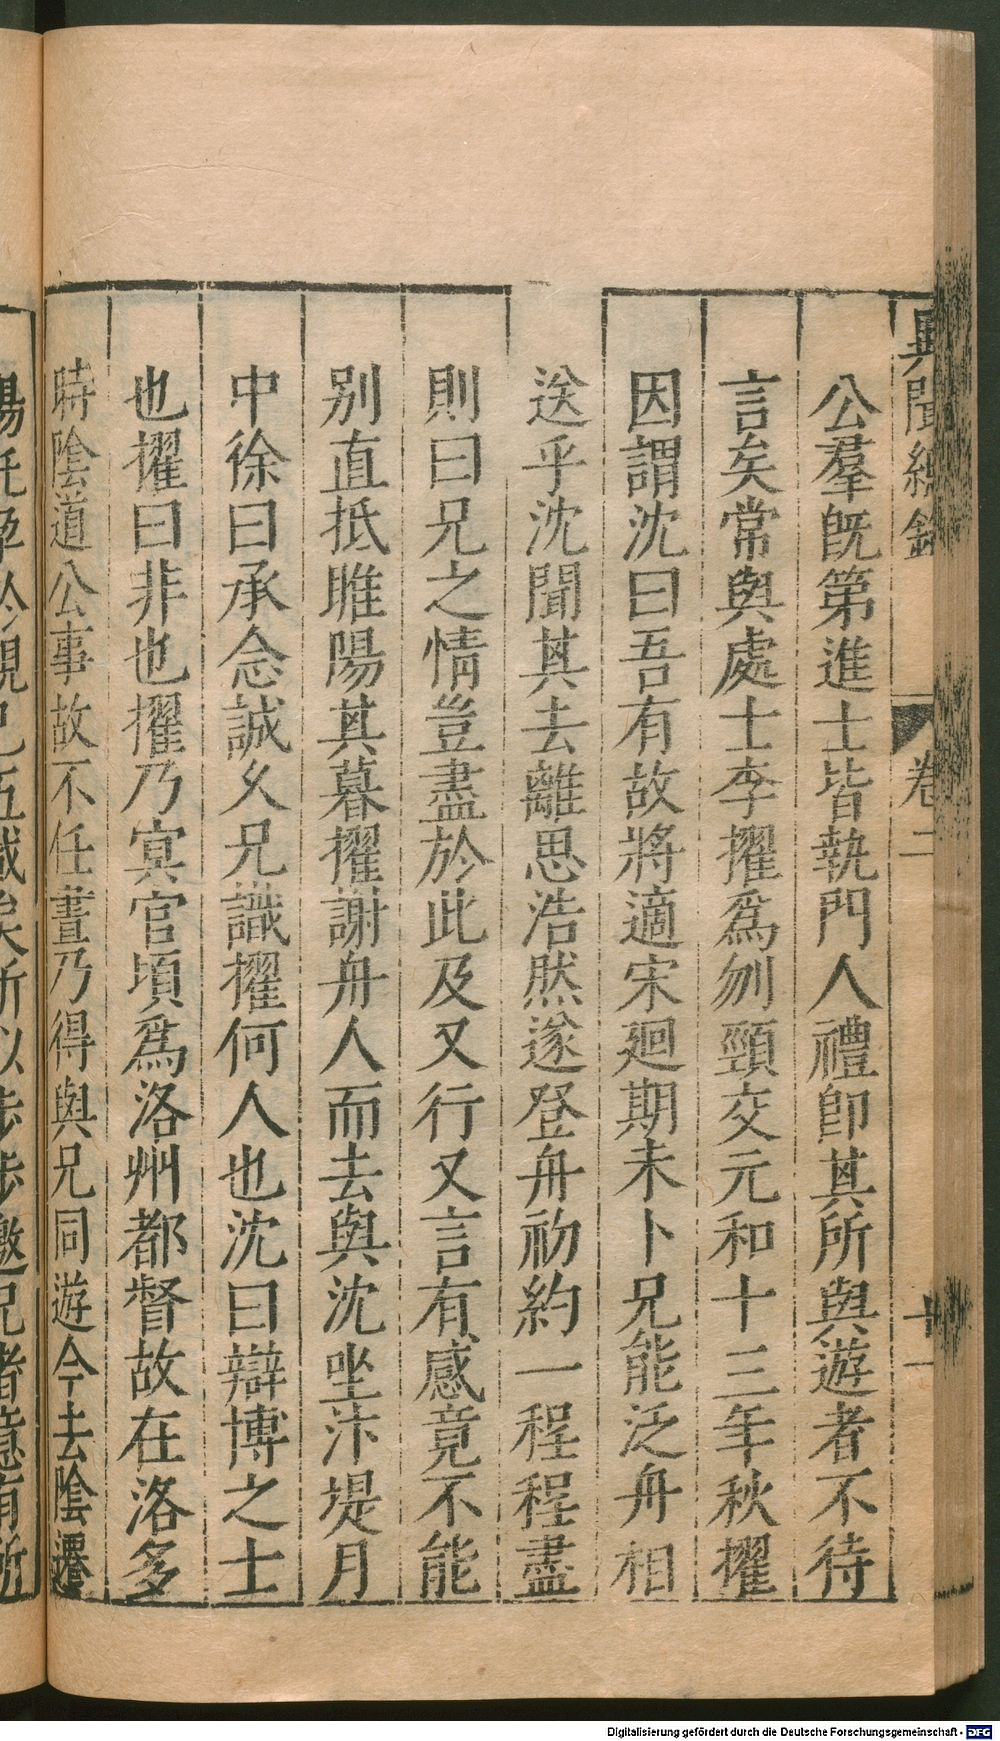 異聞總錄　卷二　十一
公羣旣第進士皆執門人禮卽其所與遊者不待
言矣常與處士李擢爲刎頸交元和十三年秋擢
因謂沈曰吾有故將適宋廻期未卜兄能泛舟相
送乎沈聞其去離思浩然遂登舟初約一程程盡
則曰兄之情豈盡於此及又行又言有感竟不能
別直抵睢陽其暮擢謝舟人而去與沈坐汴堤月
中徐曰承念誠久兄識擢何人也沈曰辯博之士
也擢曰非也擢乃冥官頃爲洛州都督故在洛多
時陰道公事故不任晝乃得與兄同遊今去陰遷
陽託孕於親已五載矣所以步步邀兄者意有所
Digitalisierung gefördert durch die Deutsche Forschungsgemeinschaft - DFG